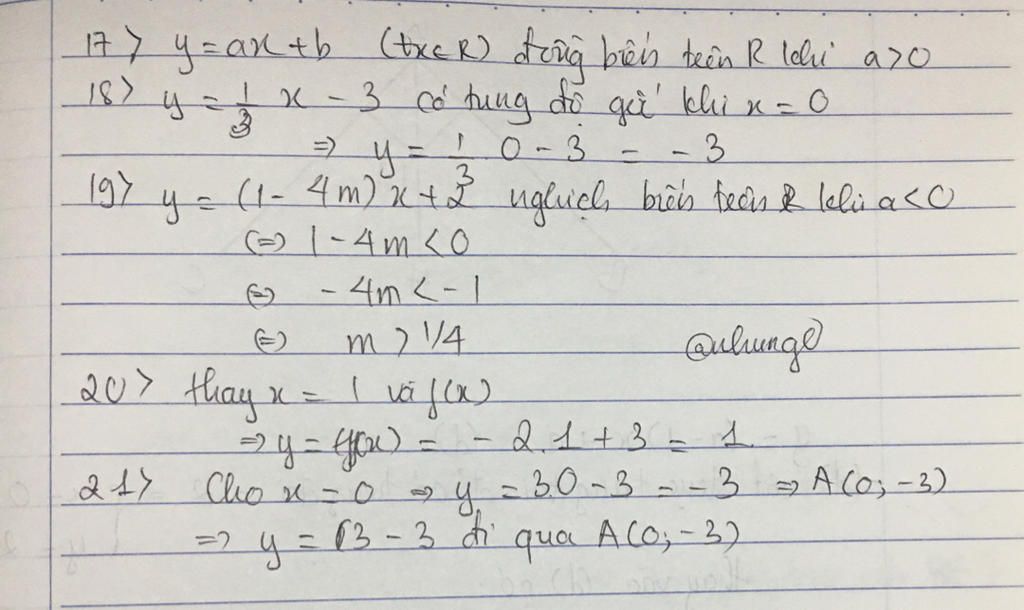 17> y = ax + b (∀x∈R) đồng biến trên R khi a>0
18> y = 1/3 x - 3 có tung độ gốc khi x = 0
=> y = 1/3 0 - 3 = - 3
19> y = (1 - 4m) x + 2 nghịch biến trên R khi a<0
(=) 1 - 4m < 0
(=) - 4m < - 1
(=) m > 1/4
@nhung
20> thay x = 1 và f(x)
=> y = f(x) = - 2.1 + 3 = 1
21> Cho x = 0 => y = 3.0 - 3 = - 3 => A(0; -3)
=> y = 3 - 3 đi qua A(0; -3)